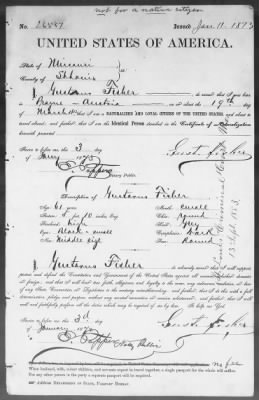 not for a native citizen
No. 26887 Issued Jan 11 1873
UNITED STATES OF AMERICA.
State of Missouri
County of St Louis
I, Gustavus Fisher do swear that I was
born in Austria on or about the 19th day of
March that I am a NATURALIZED AND LOYAL CITIZEN OF THE UNITED STATES, and about to
travel abroad; and further, that I am the Identical Person described in the Certificate of Naturalization
herewith presented.
Sworn to before me, this 3 day
of Jany 1873 Gust. Fisher
Notary Public.
Description of Gustavus Fisher
Age: 61 years Mouth: small
Stature: 5 ft 10 inches, Eng. Chin: round
Forehead: high Hair: Grey
Eyes: Black & small Complexion: Dark
Nose: Middle size Face: Round
I, Gustavus Fisher do solemnly swear that I will support,
protect, and defend the Constitution and Government of the United States against all enemies, whether domestic
or foreign; and that I will bear true faith, allegiance, and loyalty to the same, any ordinance, resolution, or law
of any State, Convention, or Legislature to the contrary notwithstanding; and further, that I do this with a full
determination, pledge, and purpose, without any mental reservation or evasion whatsoever; and further, that I
will well and faithfully perform all the duties which may be required of me by law. So help me God.
Sworn to before me, this 3rd day
of January 1873 Gust. Fisher
Notary Public
no fee
When husband, wife, minor children, and servants expect to travel together, a single passport for the whole will suffice.
For any other person in the party a separate passport will be required.
Address DEPARTMENT OF STATE, PASSPORT BUREAU.
St Louis Criminal Court
13 Sept 1853